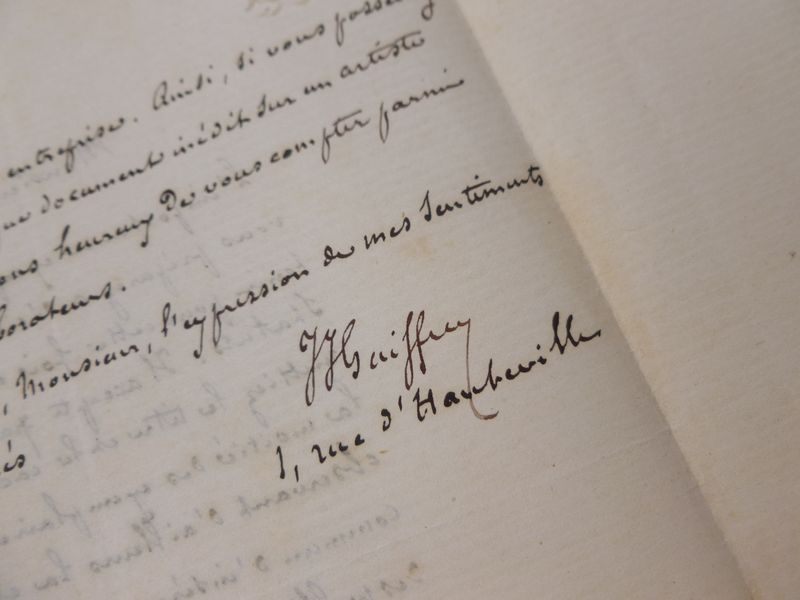 entreprise. Ainsi, si vous
document inédit sur un artiste
heureux de vous compter parmi
borateurs.
, Monsieur, l'expression de mes sentiments
és
JJ Guiffrey
1, rue d'Hauteville